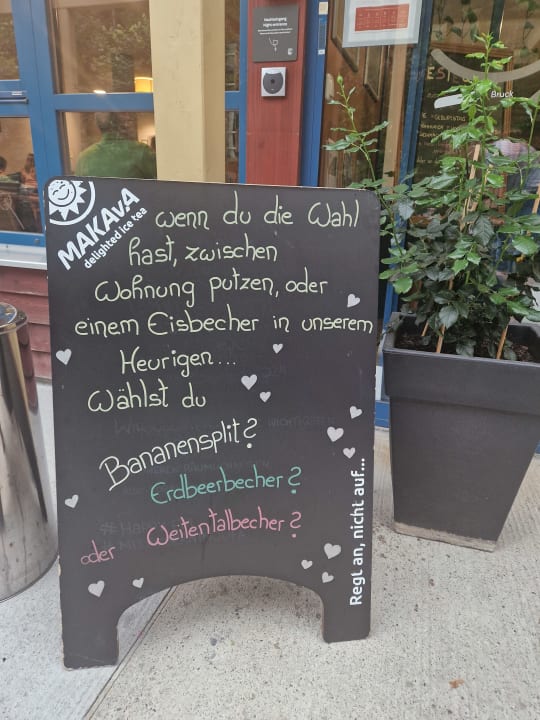 MAKAvA
delighted ice tea
wenn du die Wahl
hast, zwischen
Wohnung putzen, oder
einem Eisbecher in unserem
Heurigen...
Wählst du
Bananensplit?
Erdbeerbecher?
oder Weitentalbecher?
Regt an, nicht auf...
Bruck